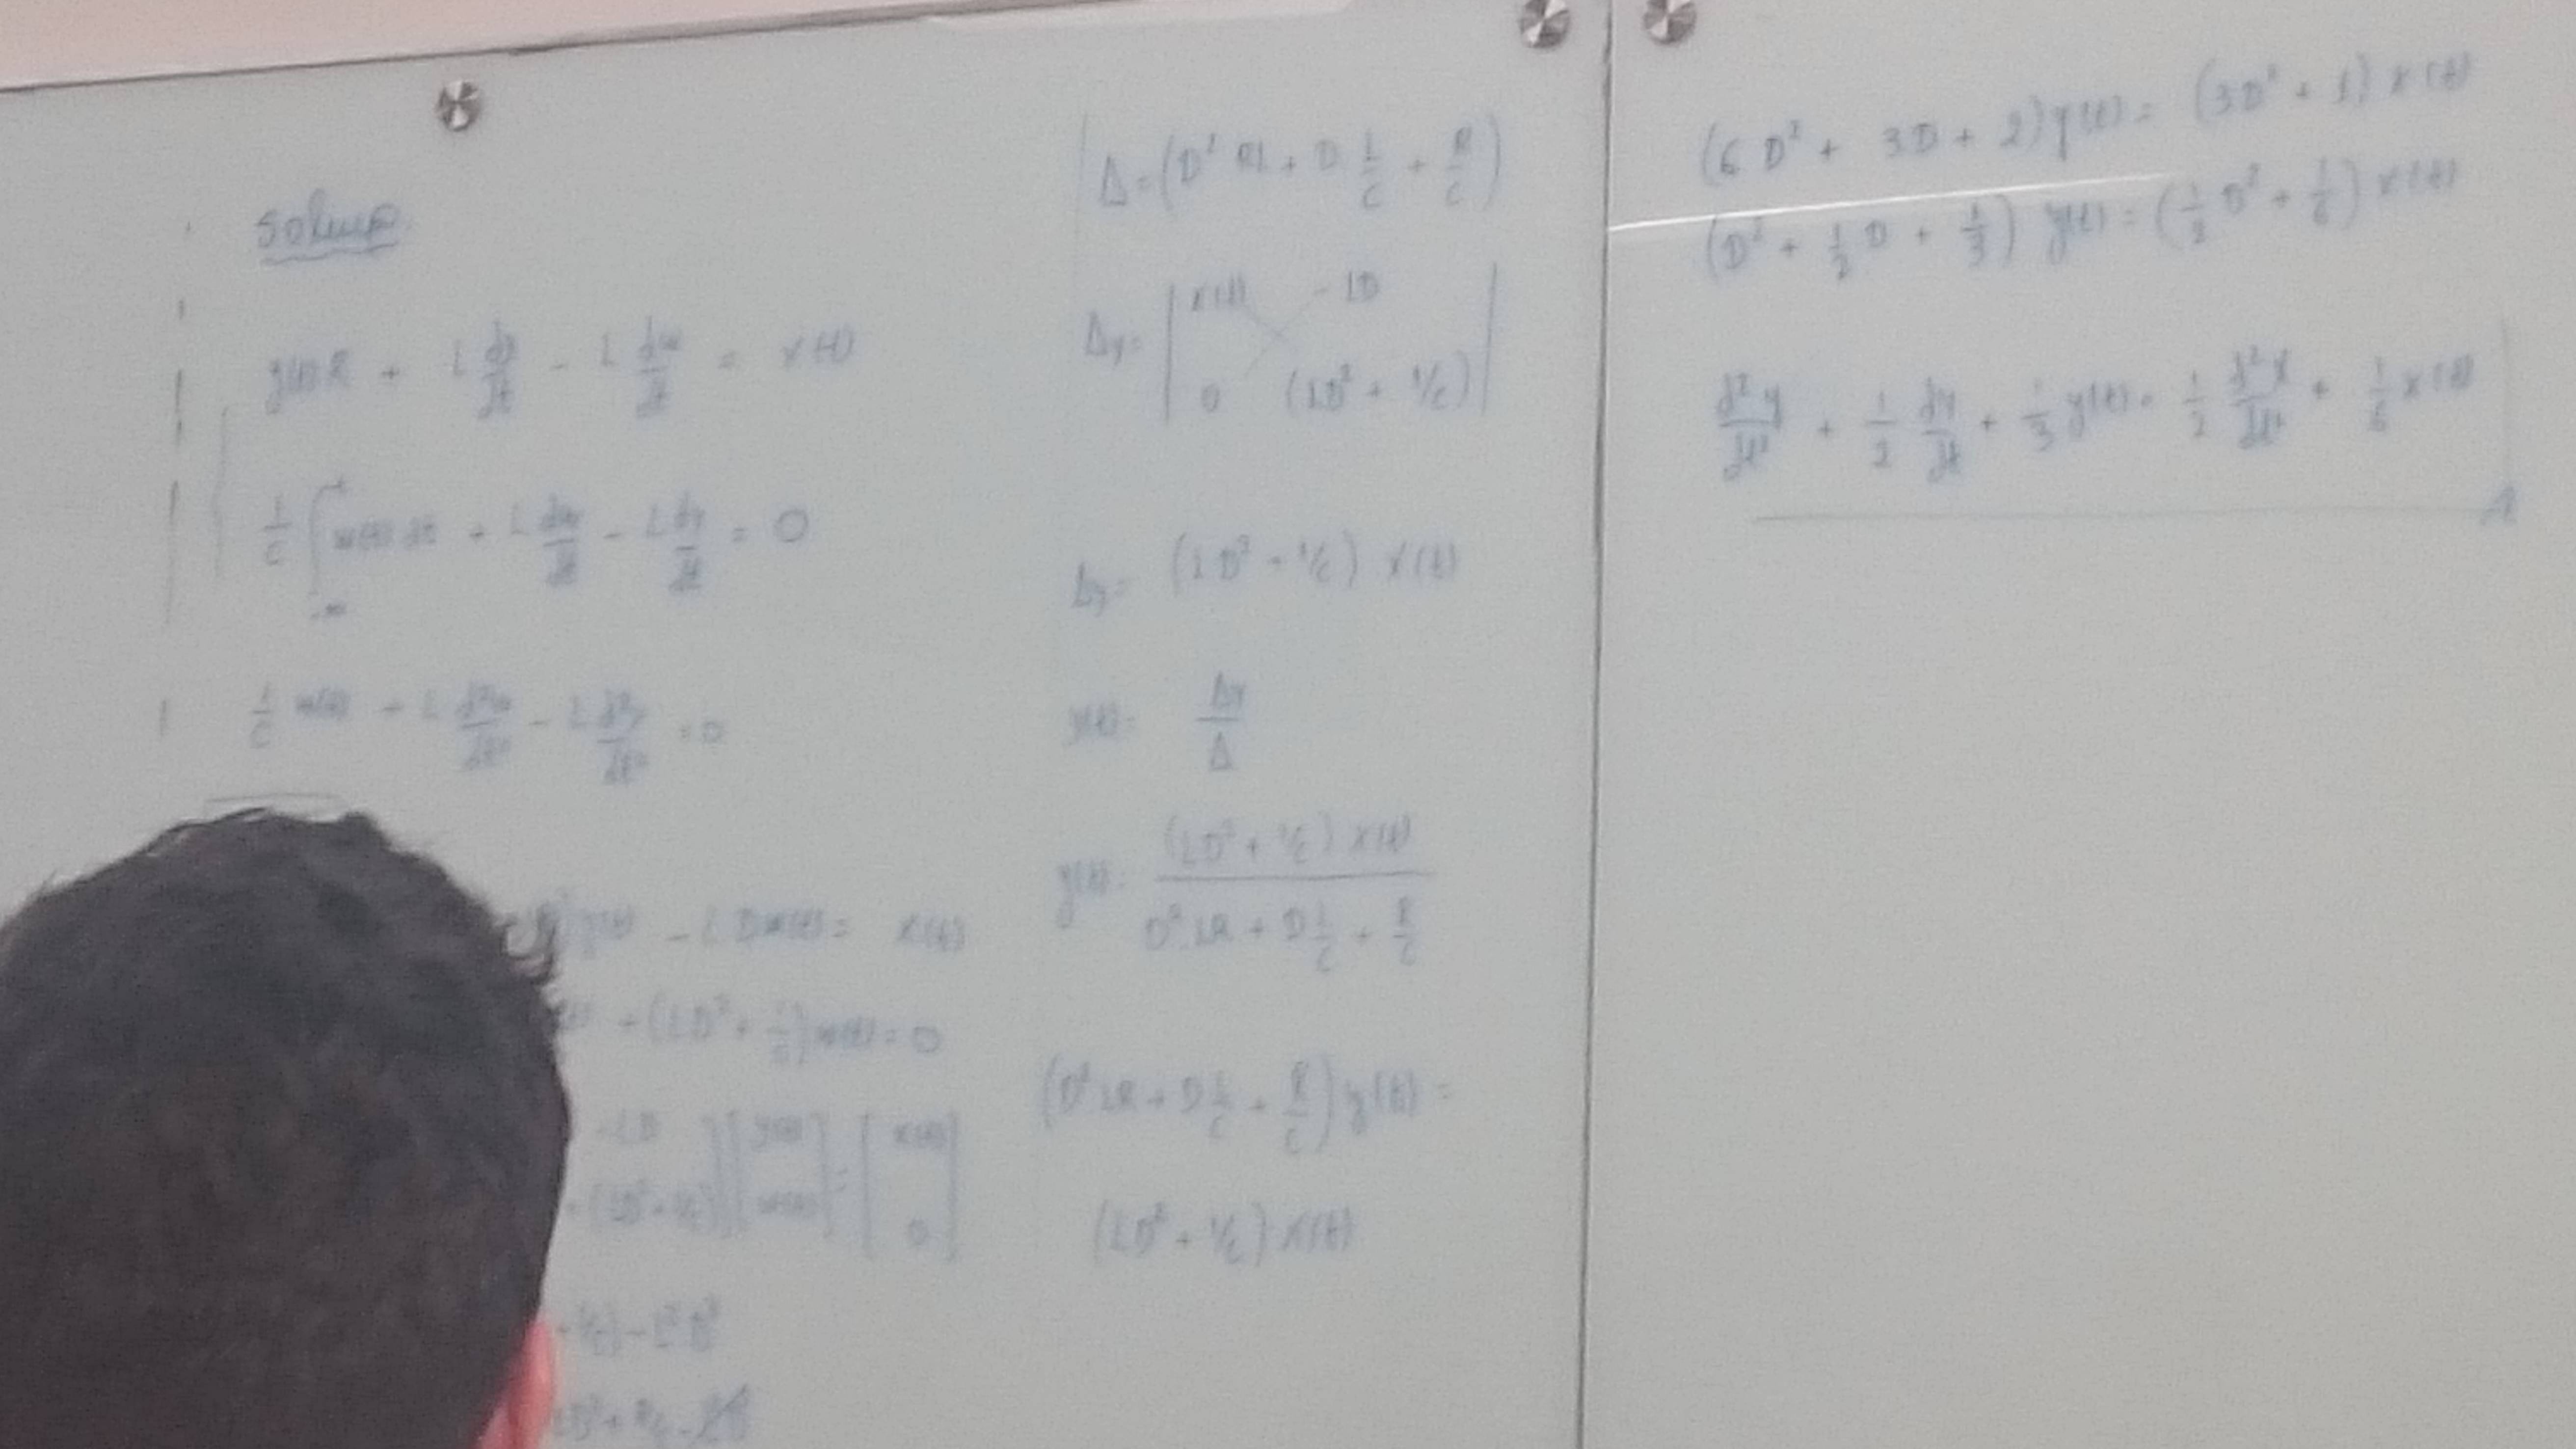 y(t)R + L dy/dt - L dw/dt = x(t)
1/C ∫_{-∞}^{t} w(τ) dτ + L dw/dt - L dy/dt = 0
1/C w(t) + L d²w/dt² - L d²y/dt² = 0
y(t) - LD w(t) = x(t)
+ (LD² + 1/C) w(t) = 0
-LD ] [ y(t) ] = [ x(t) ]
+ (LD² + 1/C) ] [ w(t) ] [ 0 ]
Δ = (D² RL + D L/C + R/C)
Δy = | x(t) -LD |
| 0 (LD² + 1/C) |
Δy = (LD² + 1/C) x(t)
y(t) = Δy/Δ
y(t) = (LD² + 1/C) x(t) / D² LR + D L/C + R/C
(D² LR + D L/C + R/C) y(t) =
(LD² + 1/C) x(t)
(6D² + 3D + 2) y(t) = (3D² + 1) x(t)
(D² + 1/2 D + 1/3) y(t) = (1/2 D² + 1/6) x(t)
d²y/dt² + 1/2 dy/dt + 1/3 y(t) = 1/2 d²x/dt² + 1/6 x(t)